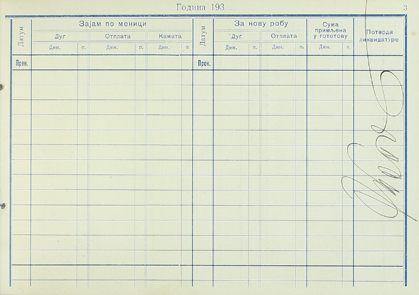 Година 193
3
Датум
Зајам по меници
Датум
За нову робу
Сума примљена у готову
Потврда ликвидатуре
Дуг
Отплата
Камата
Дуг
Отплата
Дин. п. Дин. п. Дин. п. Дин. п. Дин. п. Дин. п.
Прен.
Прен.